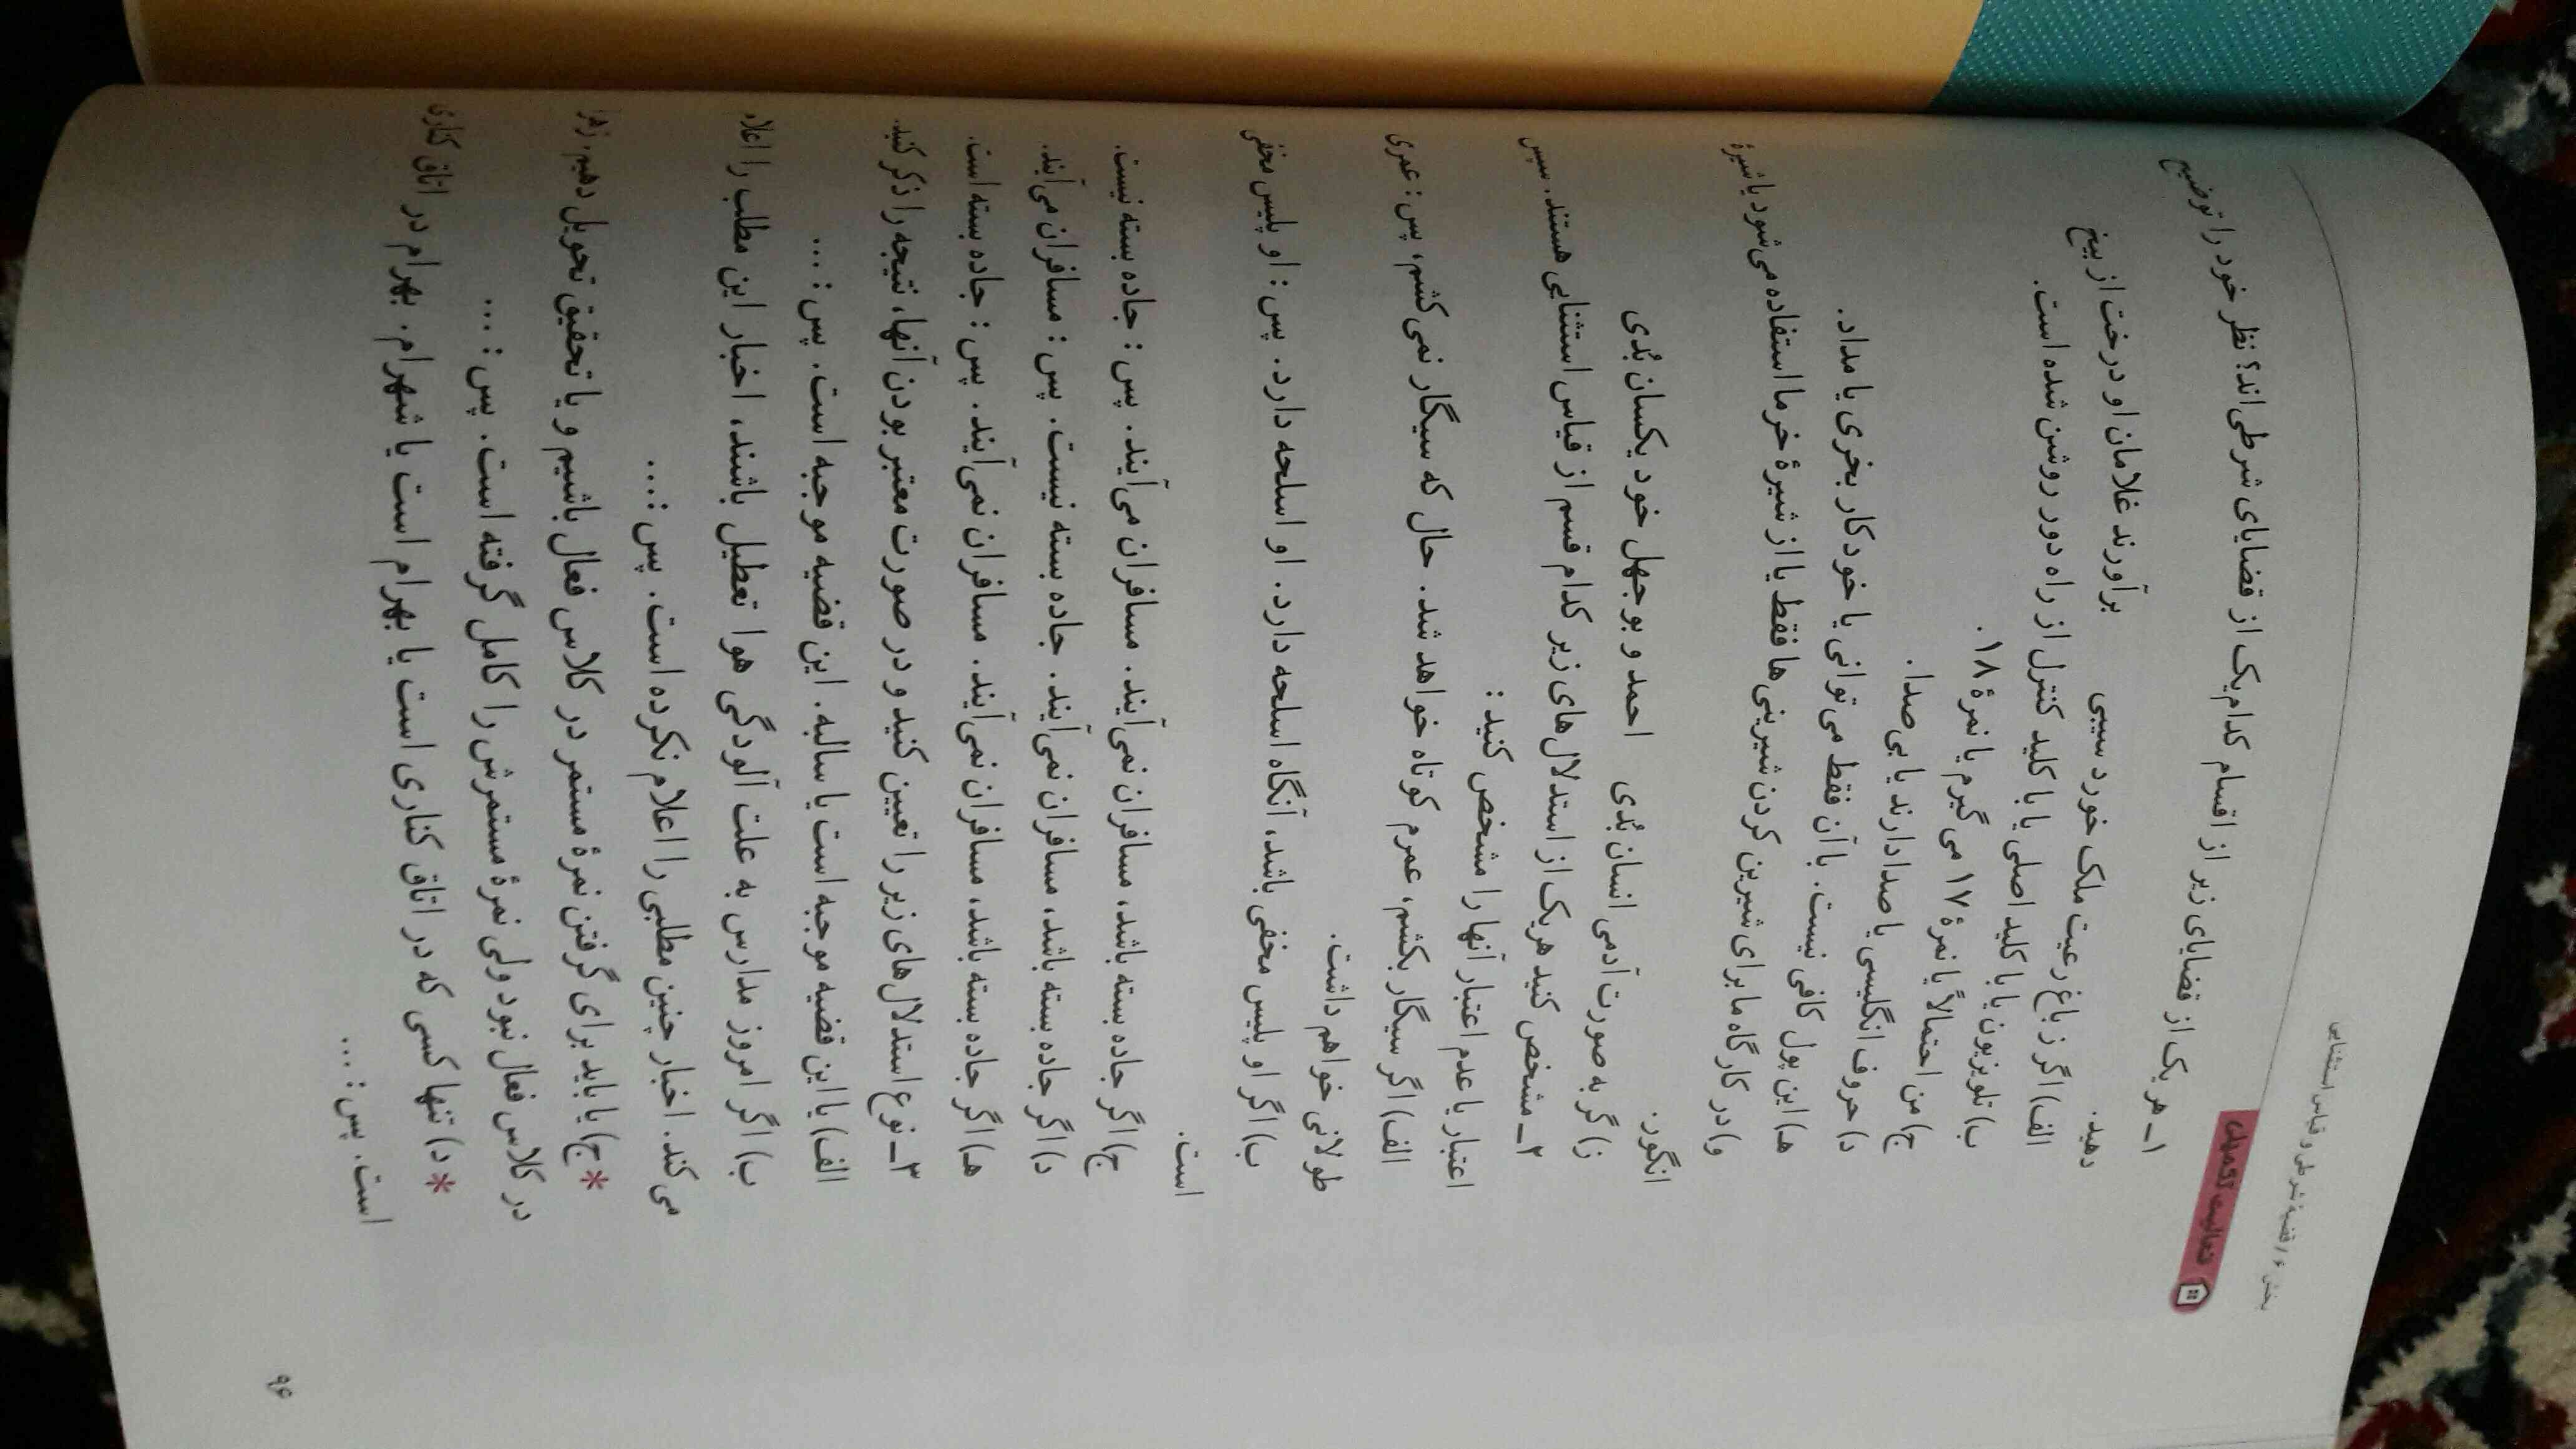 بخش ۶ / قضیهٔ شرطی و قیاس استثنایی
فعالیت تکمیلی
۱ـ هر یک از قضایای زیر از اقسام کدام یک از قضایای شرطی‌اند؟ نظر خود را توضیح
دهید.
الف) اگر ز باغ رعیت ملک خورد سیبی برآورند غلامان او درخت از بیخ
ب) تلویزیون یا با کلید اصلی یا با کلید کنترل از راه دور روشن شده است.
ج) من احتمالاً یا نمرهٔ ۱۷ می گیرم یا نمرهٔ ۱۸.
د) حروف انگلیسی یا صدا دارند یا بی صدا.
هـ) این پول کافی نیست. با آن فقط می توانی یا خودکار بخری یا مداد.
و) در کارگاه ما برای شیرین کردن شیرینی ها فقط یا از شیرهٔ خرما استفاده می شود یا شیرهٔ
انگور.
ز) گر به صورت آدمی انسان بُدی احمد و بوجهل خود یکسان بُدی
۲ـ مشخص کنید هر یک از استدلال های زیر کدام قسم از قیاس استثنایی هستند. سپس
اعتبار یا عدم اعتبار آنها را مشخص کنید :
الف) اگر سیگار بکشم، عمرم کوتاه خواهد شد. حال که سیگار نمی کشم، پس : عمری
طولانی خواهم داشت.
ب) اگر او پلیس مخفی باشد، آنگاه اسلحه دارد. او اسلحه دارد. پس : او پلیس مخفی
است.
ج) اگر جاده بسته باشد، مسافران نمی آیند. مسافران می آیند. پس : جاده بسته نیست.
د) اگر جاده بسته باشد، مسافران نمی آیند. جاده بسته نیست. پس : مسافران می آیند.
هـ) اگر جاده بسته باشد، مسافران نمی آیند. مسافران نمی آیند. پس : جاده بسته است.
۳ـ نوع استدلال های زیر را تعیین کنید و در صورت معتبر بودن آنها، نتیجه را ذکر کنید.
الف) یا این قضیه موجبه است یا سالبه. این قضیه موجبه است. پس : ...
ب) اگر امروز مدارس به علت آلودگی هوا تعطیل باشند، اخبار این مطلب را اعلام
می کند. اخبار چنین مطلبی را اعلام نکرده است. پس : ...
* ج) یا باید برای گرفتن نمرهٔ مستمر در کلاس فعال باشیم و یا تحقیق تحویل دهیم. زهرا
در کلاس فعال نبود ولی نمرهٔ مستمرش را کامل گرفته است. پس : ...
* د) تنها کسی که در اتاق کناری است یا بهرام است یا شهرام. بهرام در اتاق کناری
است. پس : ...
۹۶